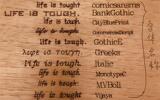 life is tough comicsansms
LIFE IS TOUGH. BankGothic
life is tough. CityBlueprint
life is tough. CommercialScript
life is tough. GothicE
λιφε ισ τουγη Greeks
life is tough. Italic
life is tough. Monotype
life is tough MVBoli
life is tough Vijaya